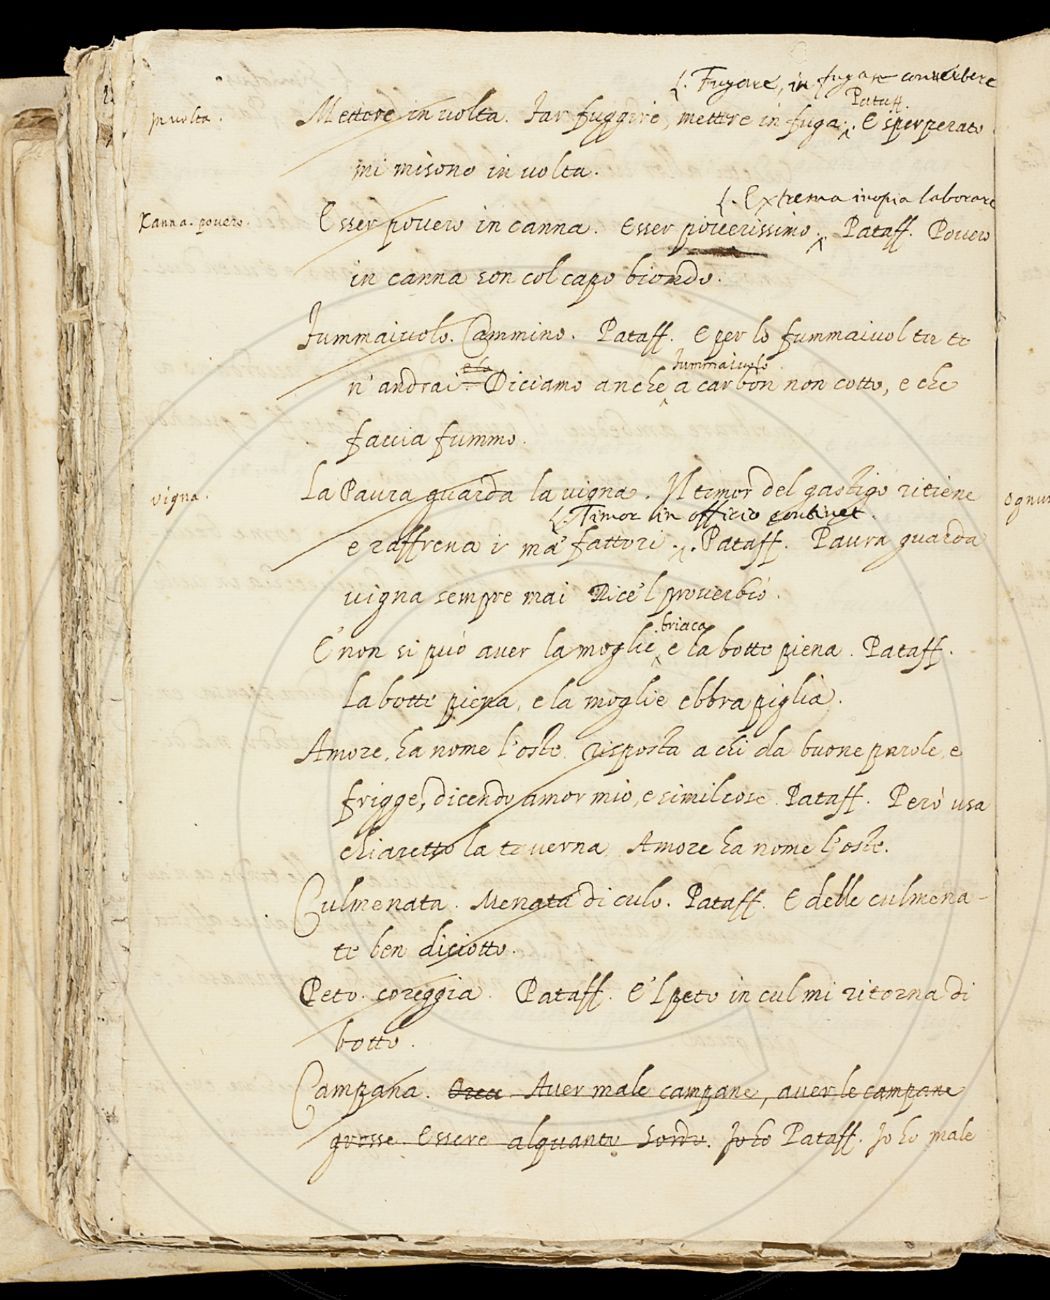 L. Fugare, in fugam convertere
in volta.
Mettere in volta. Far fuggire, mettere in fuga. Pataff. E sperperato
mi misono in volta.
L. Extrema inopia laborare
Canna. povero.
Esser povero in canna. Esser poverissimo. Pataff. Povero
in canna son col capo biondo.
Fummaiuolo. Cammino. Pataff. E per lo fummaiuol tu te
n'andrai. Diciamo anche fummaiuolo a carbon non cotto, e che
faccia fummo.
vigna.
La Paura guarda la vigna. Il timor del gastigo ritiene
L. Timor in officio continet.
e raffrena i ma' fattori. Pataff. Paura guarda
vigna sempre mai Dice'l proverbio.
E' non si può aver la moglie briaca e la botte piena. Pataff.
La botte piena, e la moglie ebbra piglia.
Amore, ha nome l'oste. risposta a chi da buone parole, e
frigge, dicendo amor mio, e simil cose. Pataff. Però usa
chiaretto la taverna. Amore ha nome l'oste.
Culmenata. Menata di culo. Pataff. E delle culmena-
te ben diciotto.
Peto. coreggia. Pataff. E'l peto in cul mi ritorna di
botto.
Campana. Aver male campane, aver le campane
grosse. Essere alquanto sordo. Io ho Pataff. Io ho male